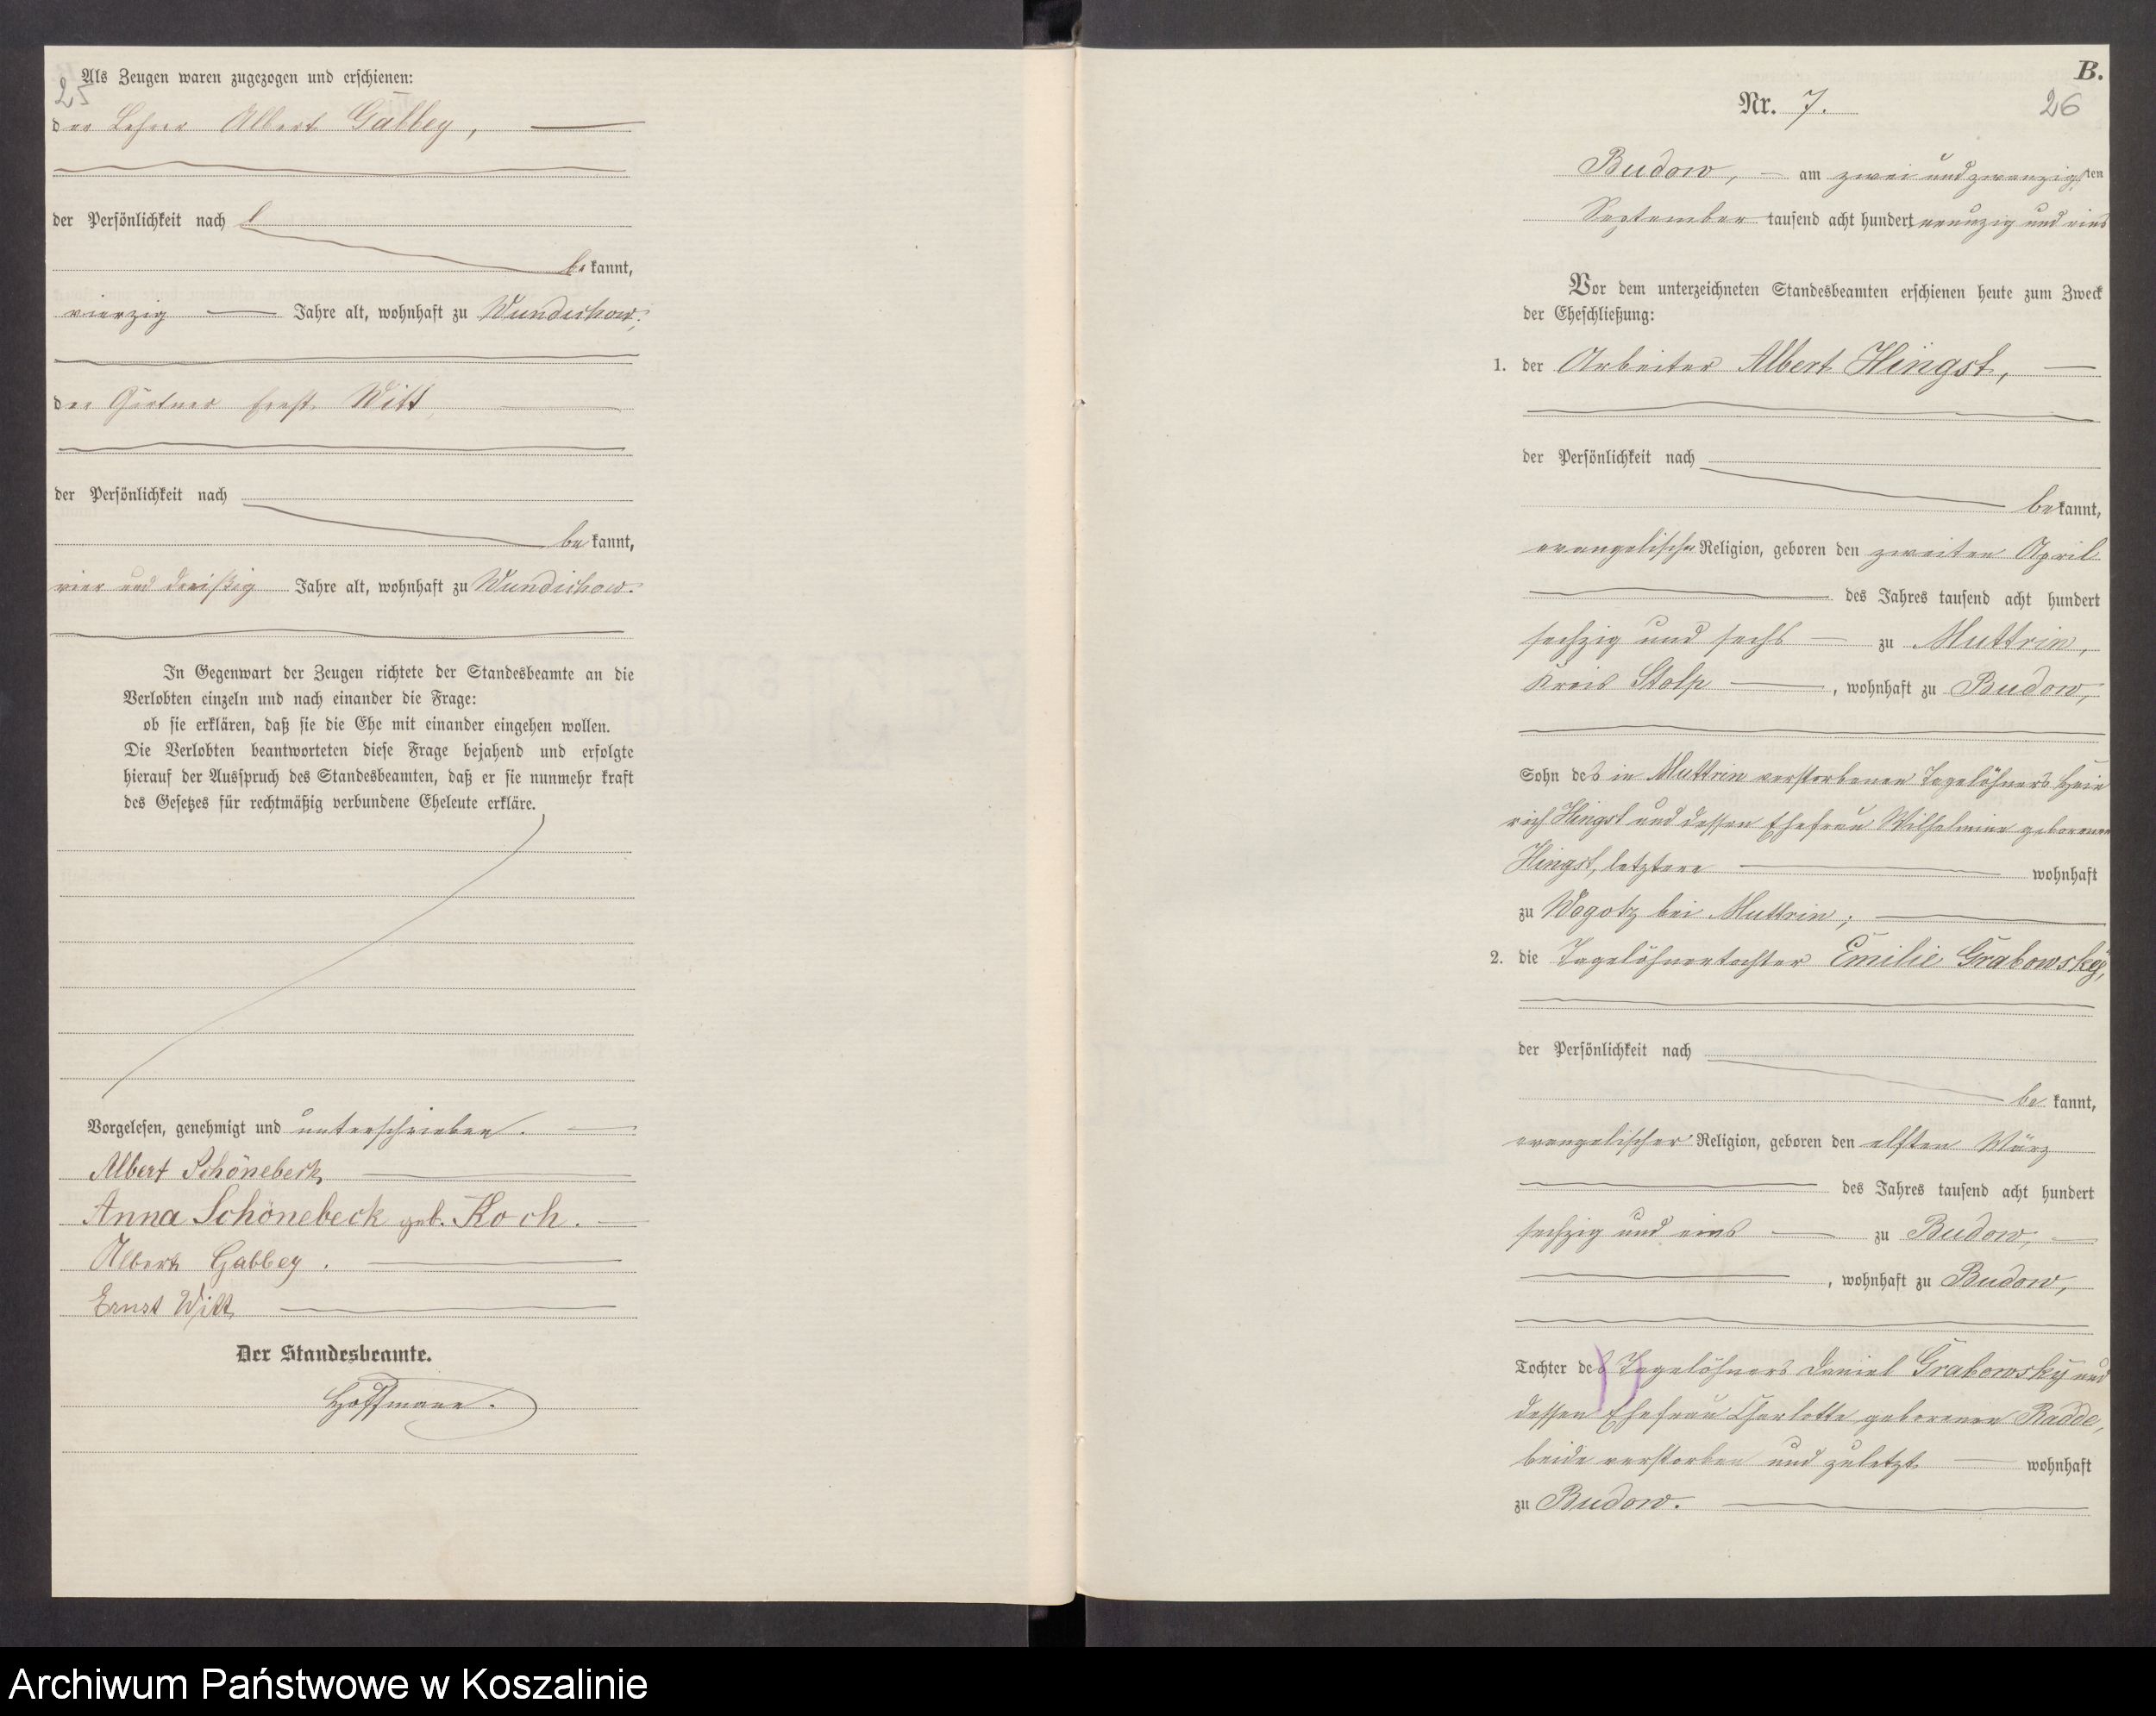 25
Als Zeugen waren zugezogen und erschienen:
der Lehrer Albert Gabbey,
der Persönlichkeit nach
be kannt,
vierzig Jahre alt, wohnhaft zu Wundichow;
der Gärtner Ernst Witt,
der Persönlichkeit nach
be kannt,
vier und dreißig Jahre alt, wohnhaft zu Wundichow.
In Gegenwart der Zeugen richtete der Standesbeamte an die
Verlobten einzeln und nach einander die Frage:
ob sie erklären, daß sie die Ehe mit einander eingehen wollen.
Die Verlobten beantworteten diese Frage bejahend und erfolgte
hierauf der Ausspruch des Standesbeamten, daß er sie nunmehr kraft
des Gesetzes für rechtmäßig verbundene Eheleute erkläre.
Vorgelesen, genehmigt und unterschrieben.
Albert Schönebeck
Anna Schönebeck geb. Koch.
Albert Gabbey.
Ernst Witt
Der Standesbeamte.
Hoffmann.
B.
Nr. 7.
26
Budow, am zwei und zwanzigsten
September tausend acht hundert neunzig und eins
Vor dem unterzeichneten Standesbeamten erschienen heute zum Zweck
der Eheschließung:
1. der Arbeiter Albert Hingst,
der Persönlichkeit nach
be kannt,
evangelischer Religion, geboren den zweiten April
des Jahres tausend acht hundert
sechzig und sechs zu Muttrin,
Kreis Stolp, wohnhaft zu Budow,
Sohn des in Muttrin verstorbenen Tagelöhners Hein
rich Hingst und dessen Ehefrau Wilhelmine geborenen
Hingst, letztere wohnhaft
zu Wogotz bei Muttrin;
2. die Tagelöhnertochter Emilie Grabowsky,
der Persönlichkeit nach
be kannt,
evangelischer Religion, geboren den elften März
des Jahres tausend acht hundert
sechzig und eins zu Budow,
, wohnhaft zu Budow,
Tochter des Tagelöhners Daniel Grabowsky und
dessen Ehefrau Charlotte geborenen Radde,
beide verstorben und zuletzt wohnhaft
zu Budow.
Archiwum Państwowe w Koszalinie